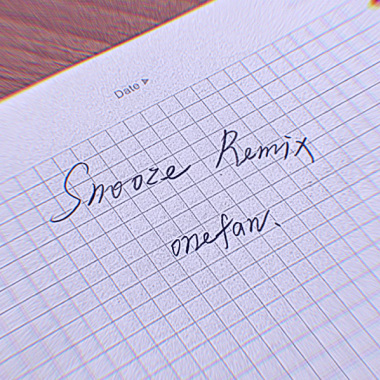 Date ▶
Snooze Remix
onefan.